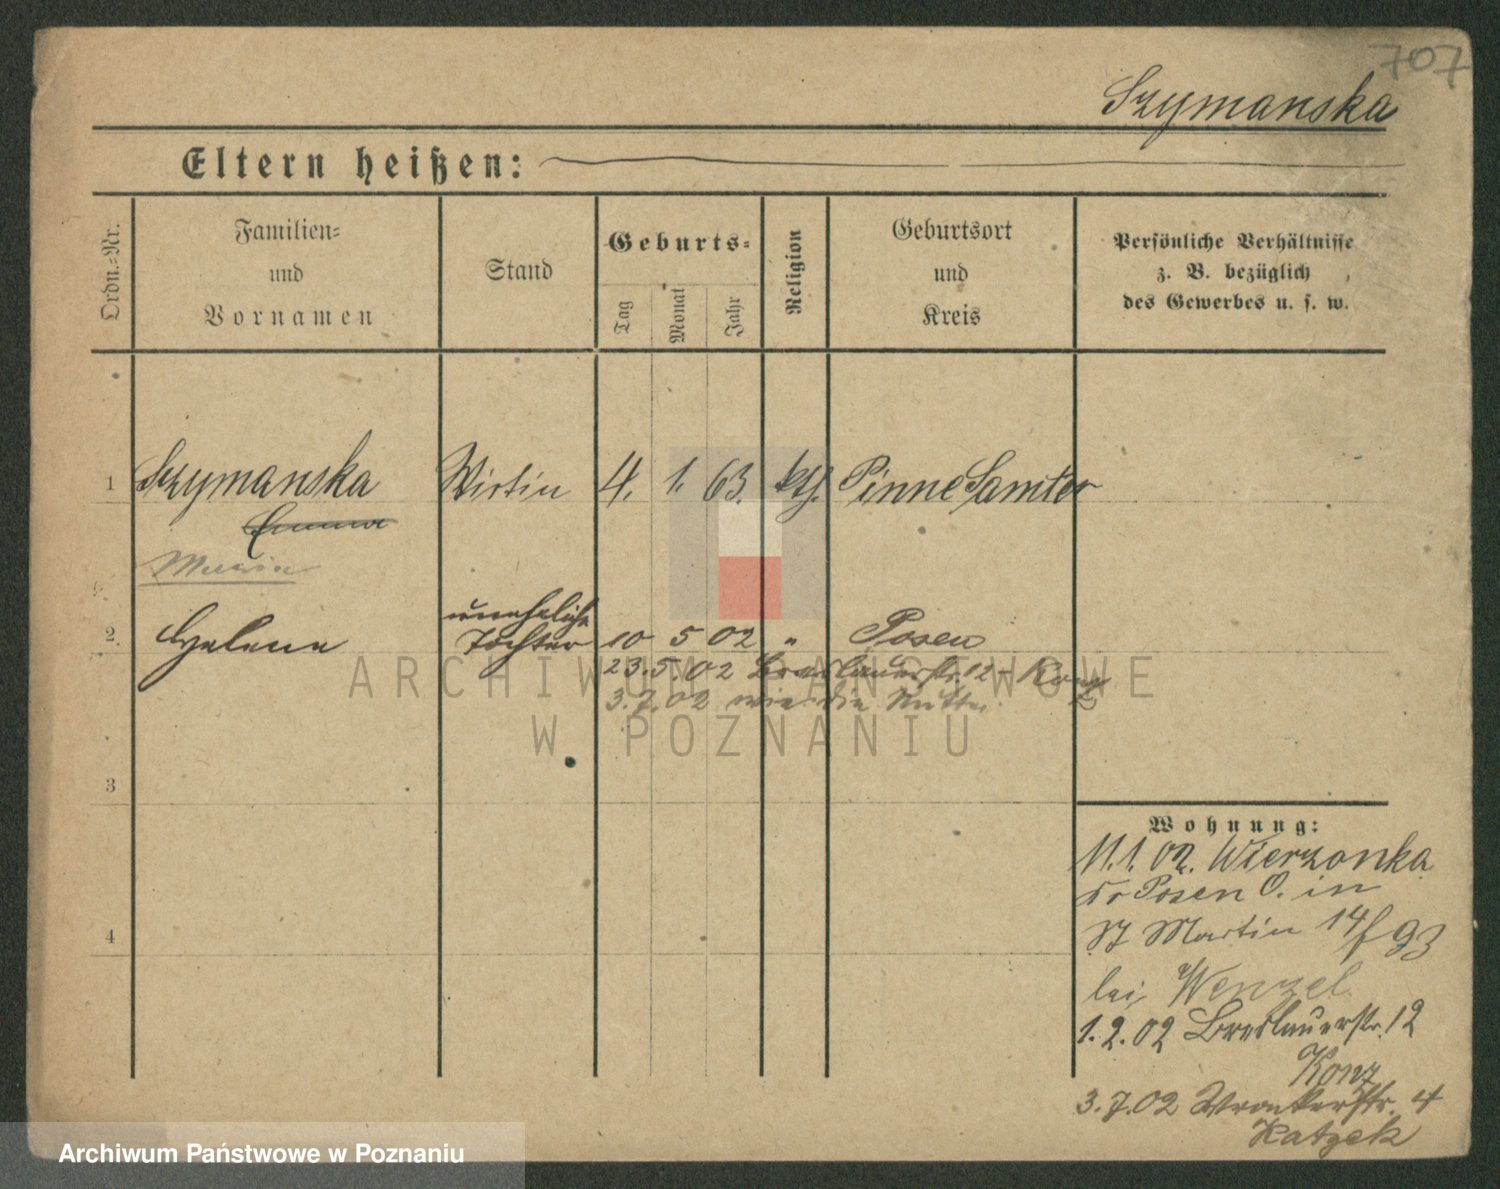 707
Szymanska
Eltern heißen:
Ordn.-Nr.
Familien-
und
Vornamen
Stand
Geburts-
Tag
Monat
Jahr
Religion
Geburtsort
und
Kreis
Persönliche Verhältnisse
z. B. bezüglich
des Gewerbes u. s. w.
1 Szymanska Wirtin 4. 1. 63. kth. Pinne Samter
Emma
2 Helene uneheliche
Tochter 10 5 02 " Posen
23.5.02 Breslauerstr. 12 - Konz
3.7.02 wie die Mutter
3
4
Wohnung:
11.1.02. Wierzonka
Kr Posen O. in
St Martin 14 f 93
bei Wenzel
1.2.02 Breslauerstr. 12
Konz
3.7.02 Wronkerstr. 4
Katzek
ARCHIWUM PAŃSTWOWE
W POZNANIU
Archiwum Państwowe w Poznaniu